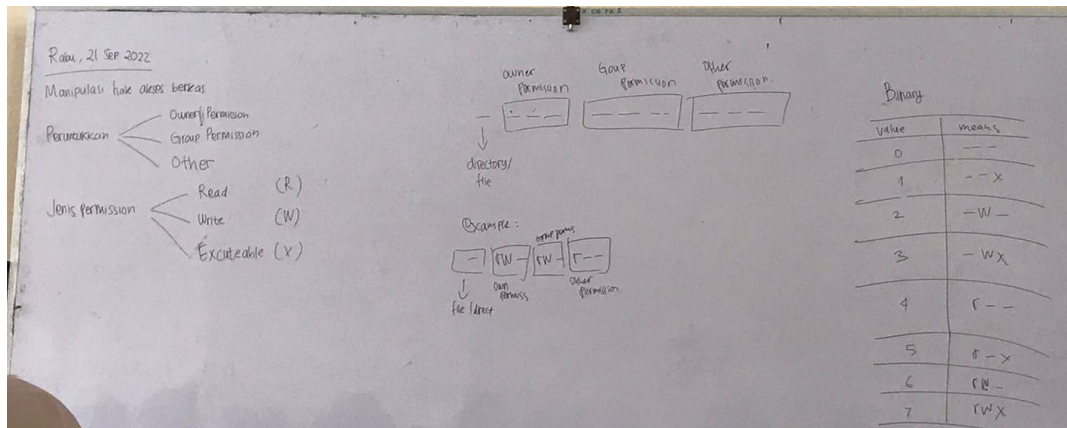 Rabu, 21 Sep 2022
Manipulasi hak akses berkas
Peruntukkan
Owner Permission
Group Permission
Other
Jenis permission
Read (R)
Write (W)
Excuteable (X)
owner permission
Goup permission
Other permission
_ _ _ _ _ _ _ _ _ _
directory/
file
Example:
- rw- rw- r--
own
permiss
Other
permission
file/direct
Binary
value means
0 ---
1 --x
2 -w-
3 -wx
4 r--
5 r-x
6 rw-
7 rwx